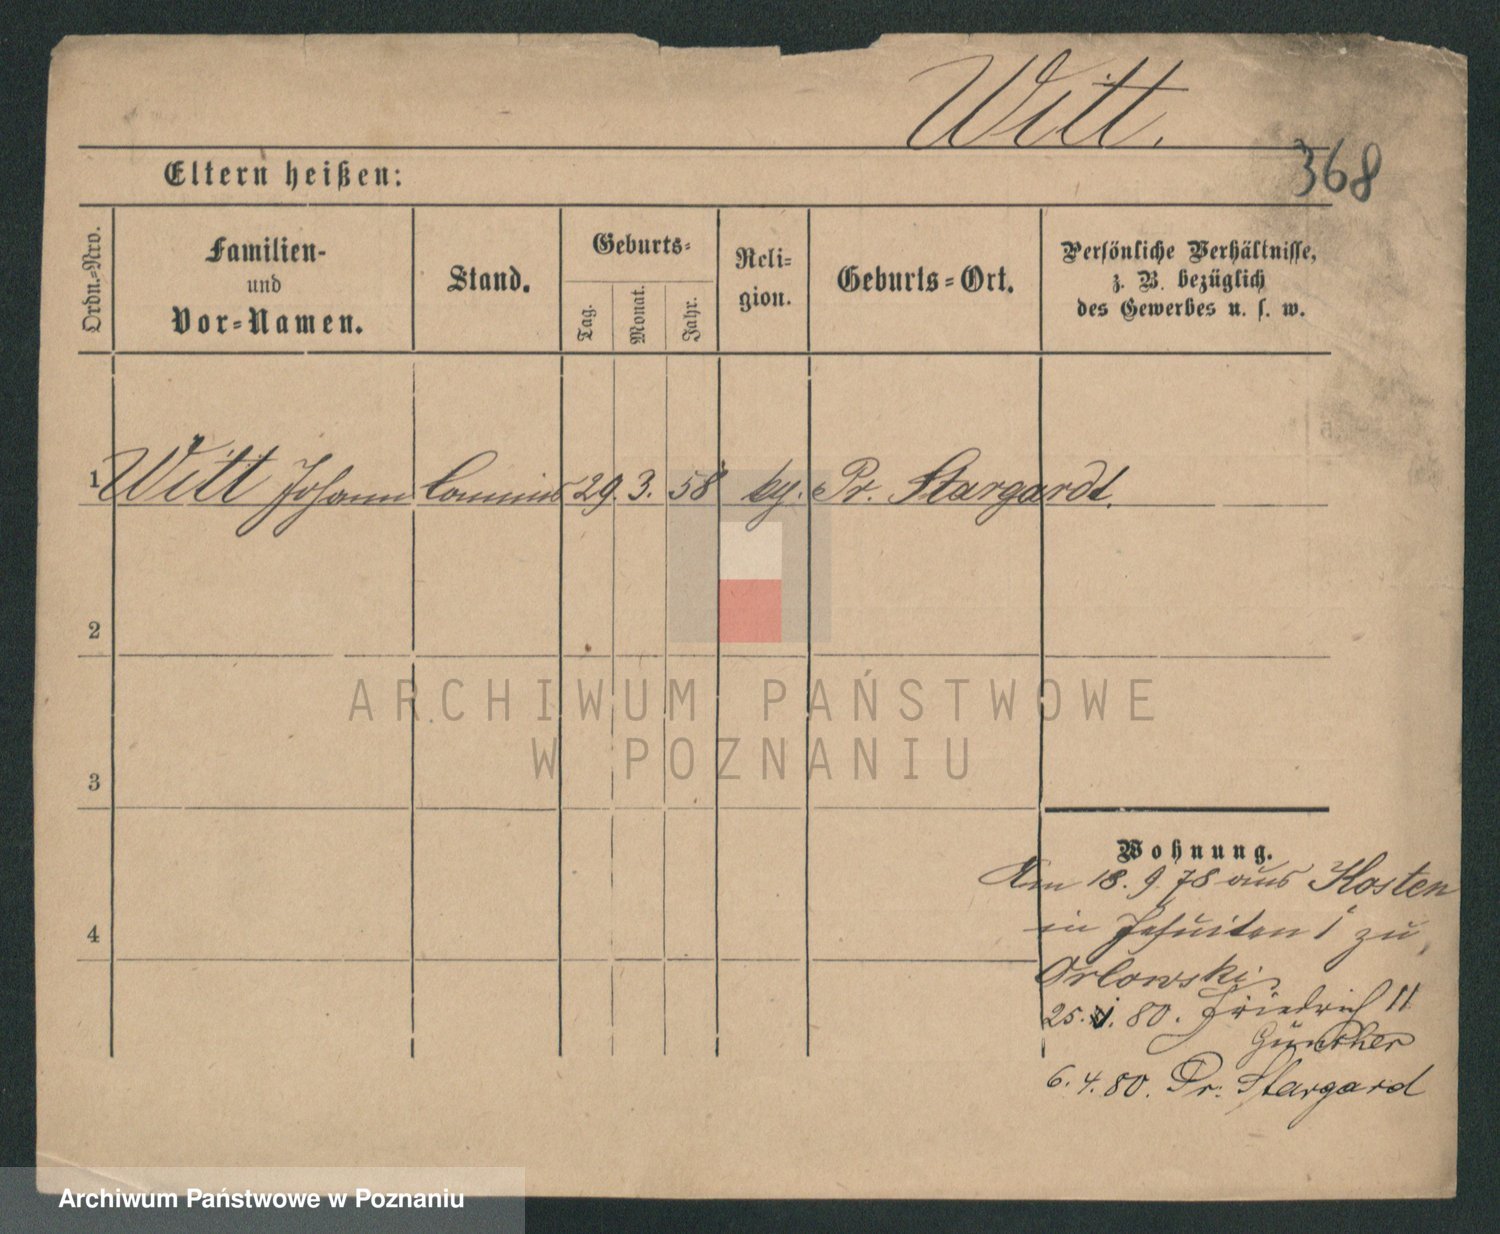 Witt.
368
Eltern heißen:
Ordn.-Nro.
Familien-
und
Vor-Namen.
Stand.
Geburts-
Tag.
Monat.
Jahr.
Reli-
gion.
Geburts-Ort.
Persönliche Verhältnisse,
z. B. bezüglich
des Gewerbes u. s. w.
1 Witt Johann Commis 29. 3. 58 Pr. Stargardt.
2
3
4
Wohnung.
Am 18. 9. 78 aus Kosten
in Jesuiten 1 zu
Orlowski
25. 80. Friedrich 11
Günther
6. 4. 80. Pr. Stargard
ARCHIWUM PAŃSTWOWE
W POZNANIU
Archiwum Państwowe w Poznaniu